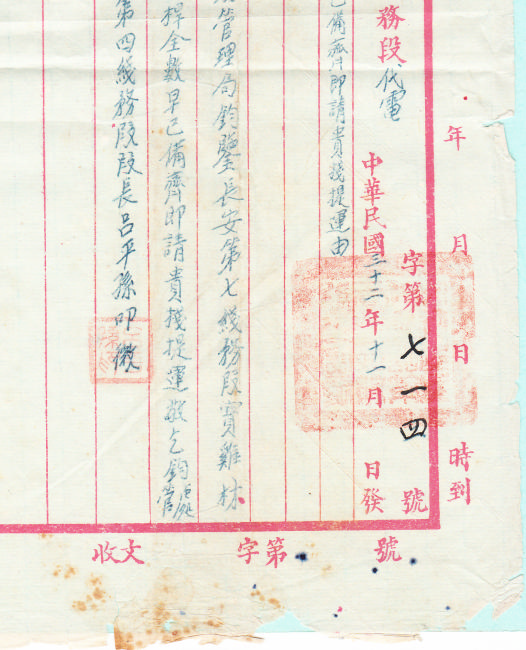 年 月 日 時到
字第七一四號
務段代電 中華民國三十二年十一月 日發
已備齊即請貴棧提運由
管理局鈞鑒長安第七綫務段寶雞材
桿全數早已備齊即請貴棧提運敬乞鈞
第四綫務段段長呂平孫叩微
收文 字第 號